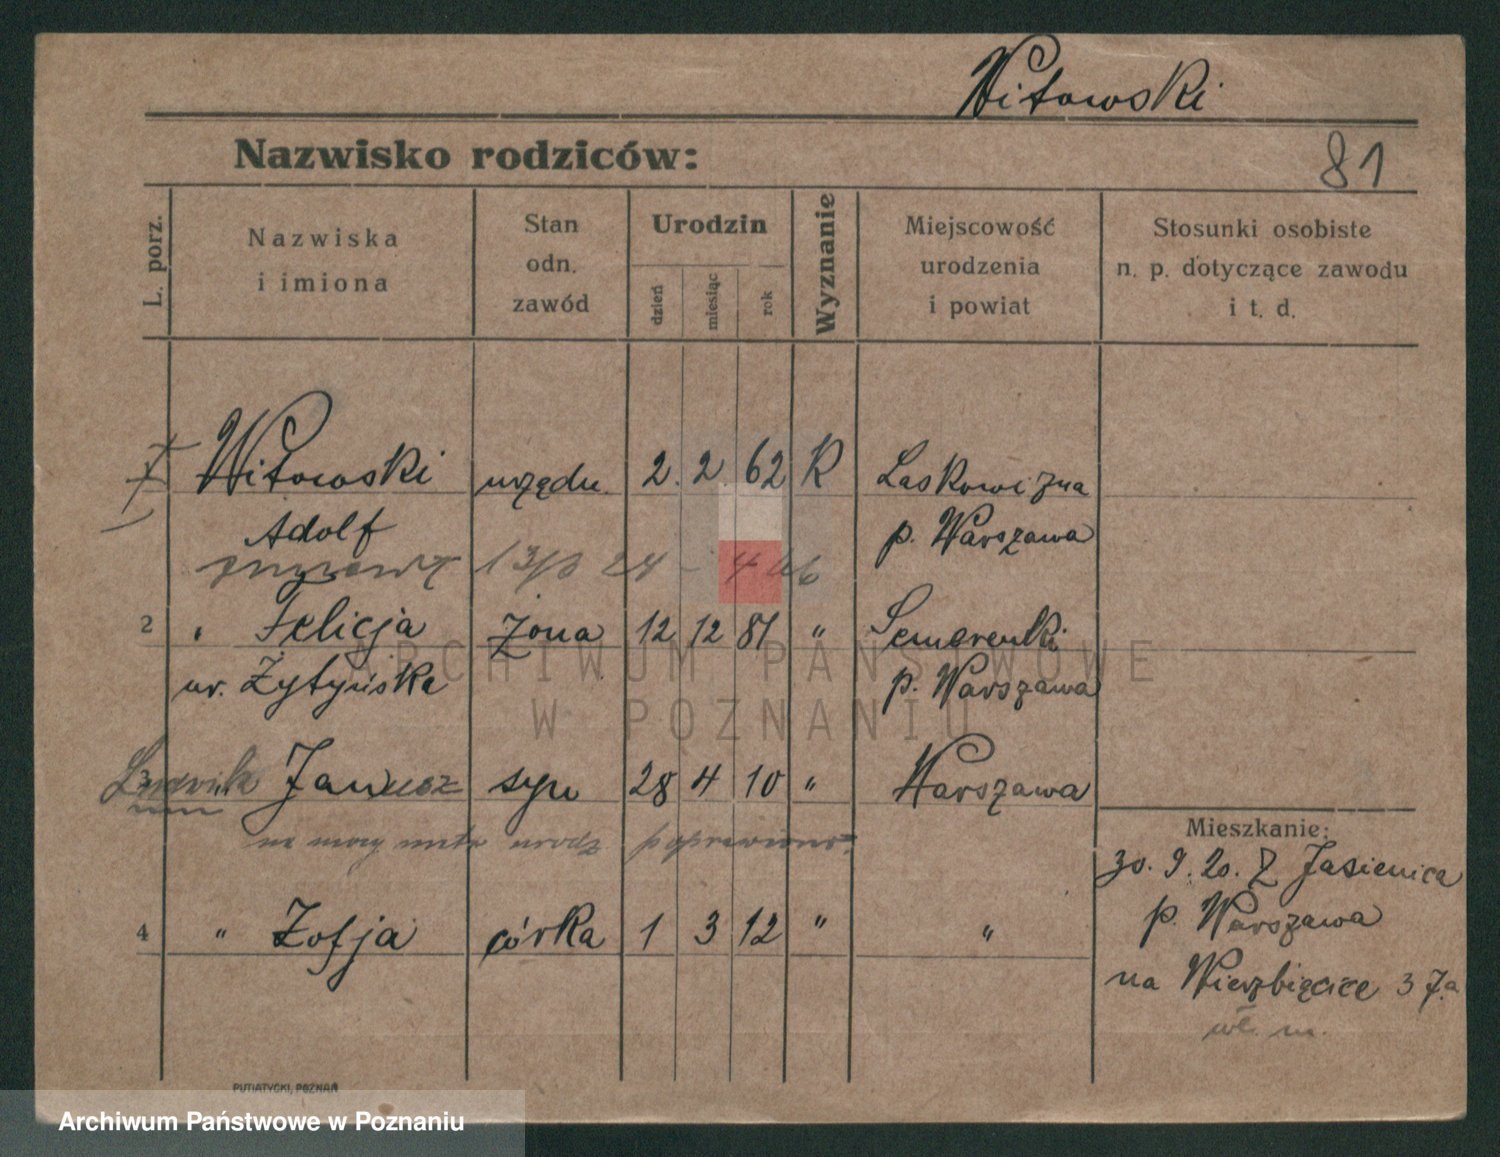 Witowski
Nazwisko rodziców:
81
L. porz.
Nazwiska
i imiona
Stan
odn.
zawód
Urodzin
dzień
miesiąc
rok
Wyznanie
Miejscowość
urodzenia
i powiat
Stosunki osobiste
n. p. dotyczące zawodu
i t. d.
Witowski urzędn. 2. 2. 62 R Laskowizna
Adolf p. Warszawa
13/3 24 -
2 " Felicja żona 12 12 81 " 
ur. Żytyńska p. Warszawa
3 Ludwik Janusz syn 28 4 10 " Warszawa
na mocy metr urodz poprawiono.
4 " Zofja córka 1 3 12 " "
Mieszkanie:
30. 9. 20. Z Jasienica
p. Warszawa
na Wierzbięcice 37.a
wł. m.
PUTIATYCKI, POZNAŃ
ARCHIWUM PAŃSTWOWE
W POZNANIU
Archiwum Państwowe w Poznaniu